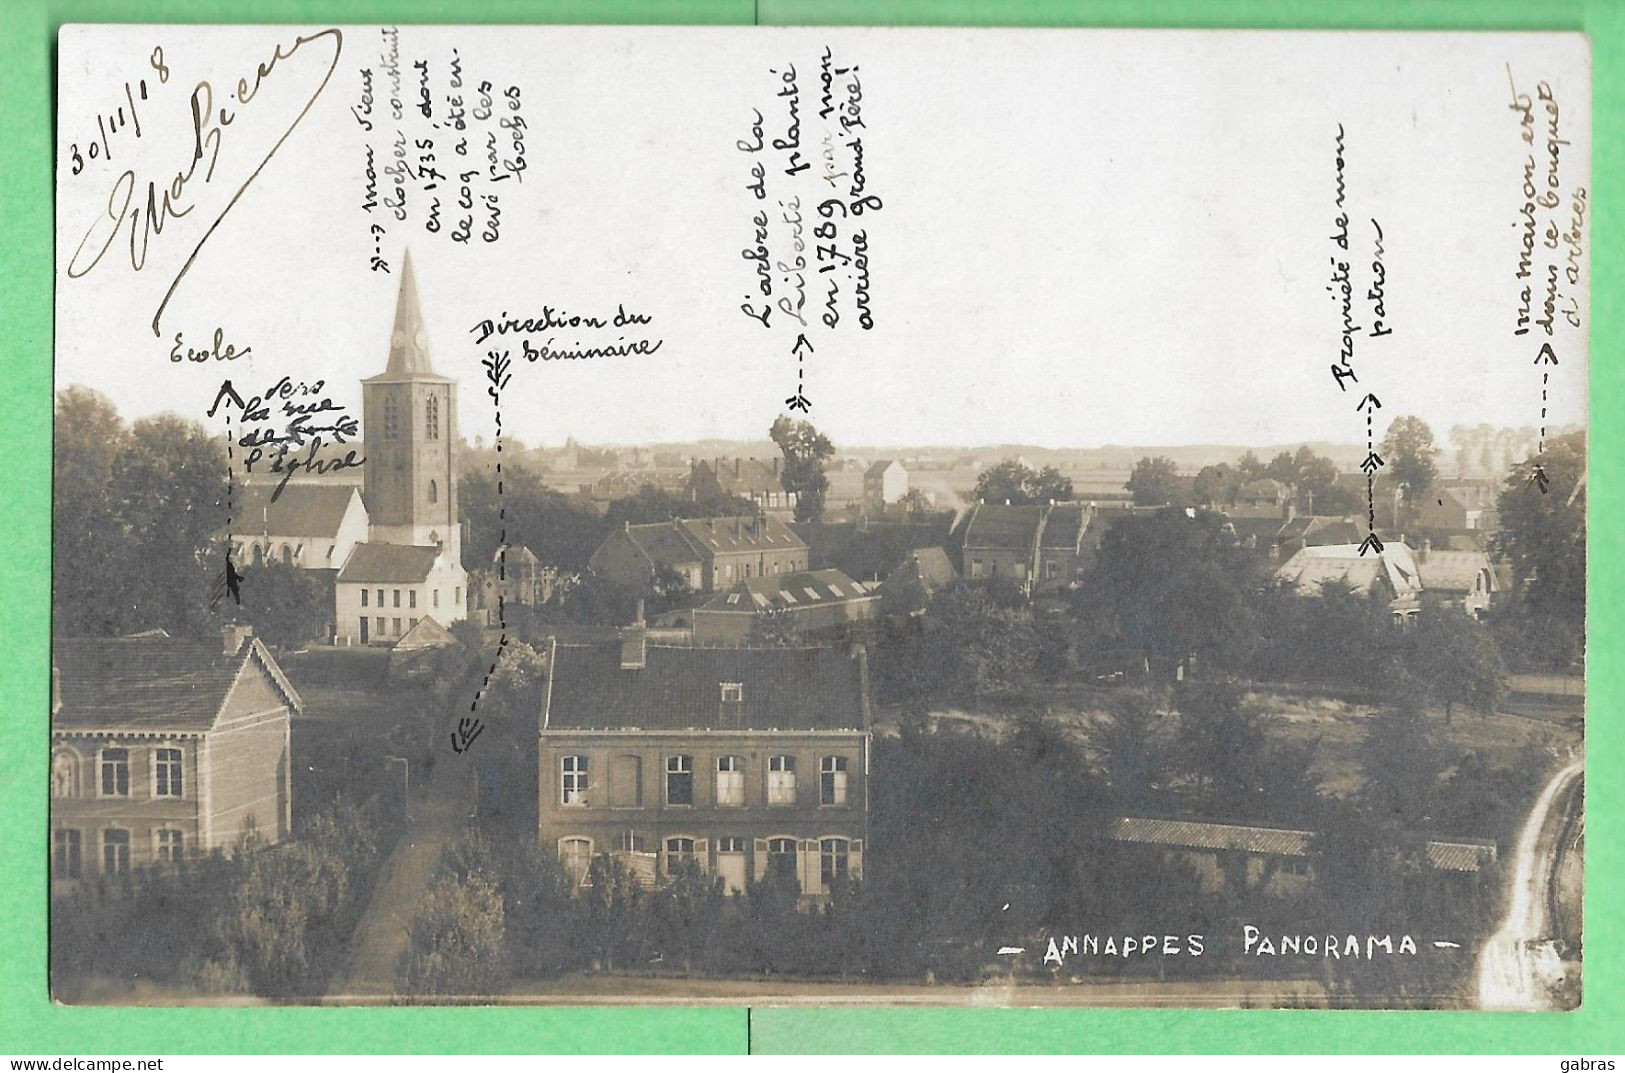 30/11/18
Ecole
vers
la rue
de
l'Eglise
mon vieux
clocher construit
en 1735, dont
le coq a été en-
levé par les
boches
Direction du
Séminaire
L'arbre de la
Liberté planté
en 1789 par mon
arrière grand'Père!
Propriété de mon
patron
ma maison est
dans ce bouquet
d'arbres
- ANNAPPES PANORAMA -
gabras